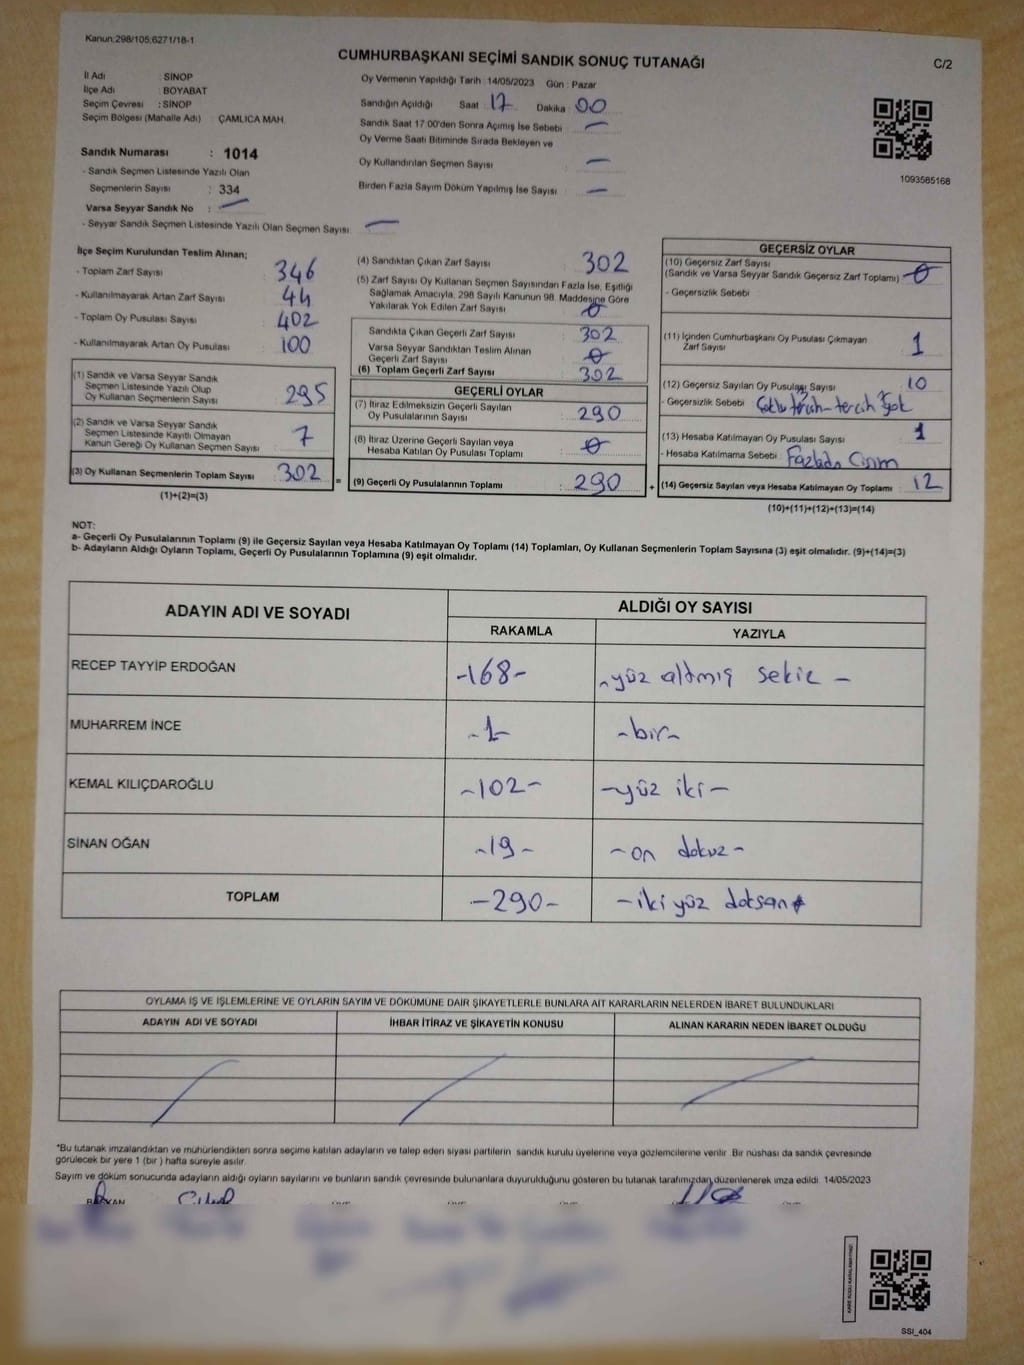 Kanun:298/105;6271/18-1
CUMHURBAŞKANI SEÇİMİ SANDIK SONUÇ TUTANAĞI
C/2
İl Adı : SİNOP
İlçe Adı : BOYABAT
Seçim Çevresi : SİNOP
Seçim Bölgesi (Mahalle Adı) : ÇAMLICA MAH.
Oy Vermenin Yapıldığı Tarih :14/05/2023 Gün : Pazar
Sandığın Açıldığı Saat : 17 Dakika : 00
Sandık Saat 17:00'den Sonra Açımış İse Sebebi : —
Oy Verme Saati Bitiminde Sırada Bekleyen ve
Oy Kullandırılan Seçmen Sayısı : —
Birden Fazla Sayım Döküm Yapılmış İse Sayısı : —
1093585168
Sandık Numarası : 1014
- Sandık Seçmen Listesinde Yazılı Olan
Seçmenlerin Sayısı : 334
Varsa Seyyar Sandık No : —
- Seyyar Sandık Seçmen Listesinde Yazılı Olan Seçmen Sayısı: —
İlçe Seçim Kurulundan Teslim Alınan;
- Toplam Zarf Sayısı : 346
- Kullanılmayarak Artan Zarf Sayısı : 44
- Toplam Oy Pusulası Sayısı : 402
- Kullanılmayarak Artan Oy Pusulası : 100
(1) Sandık ve Varsa Seyyar Sandık
Seçmen Listesinde Yazılı Olup
Oy Kullanan Seçmenlerin Sayısı : 295
(2) Sandık ve Varsa Seyyar Sandık
Seçmen Listesinde Kayıtlı Olmayan
Kanun Gereği Oy Kullanan Seçmen Sayısı : 7
(3) Oy Kullanan Seçmenlerin Toplam Sayısı : 302
(1)+(2)=(3)
(4) Sandıktan Çıkan Zarf Sayısı : 302
(5) Zarf Sayısı Oy Kullanan Seçmen Sayısından Fazla İse, Eşitliği
Sağlamak Amacıyla, 298 Sayılı Kanunun 98. Maddesine Göre
Yakılarak Yok Edilen Zarf Sayısı : 0
Sandıkta Çıkan Geçerli Zarf Sayısı : 302
Varsa Seyyar Sandıktan Teslim Alınan
Geçerli Zarf Sayısı : 0
(6) Toplam Geçerli Zarf Sayısı : 302
GEÇERLİ OYLAR
(7) İtiraz Edilmeksizin Geçerli Sayılan
Oy Pusulalarının Sayısı : 290
(8) İtiraz Üzerine Geçerli Sayılan veya
Hesaba Katılan Oy Pusulası Toplamı : 0
= (9) Geçerli Oy Pusulalarının Toplamı : 290 +
GEÇERSİZ OYLAR
(10) Geçersiz Zarf Sayısı
(Sandık ve Varsa Seyyar Sandık Geçersiz Zarf Toplamı) : 0
- Geçersizlik Sebebi :
(11) İçinden Cumhurbaşkanı Oy Pusulası Çıkmayan
Zarf Sayısı : 1
(12) Geçersiz Sayılan Oy Pusulası Sayısı : 10
- Geçersizlik Sebebi : Çoklu tercih - tercih yok
(13) Hesaba Katılmayan Oy Pusulası Sayısı : 1
- Hesaba Katılmama Sebebi : Fazladan
(14) Geçersiz Sayılan veya Hesaba Katılmayan Oy Toplamı : 12
(10)+(11)+(12)+(13)=(14)
NOT:
a- Geçerli Oy Pusulalarının Toplamı (9) ile Geçersiz Sayılan veya Hesaba Katılmayan Oy Toplamı (14) Toplamları, Oy Kullanan Seçmenlerin Toplam Sayısına (3) eşit olmalıdır. (9)+(14)=(3)
b- Adayların Aldığı Oyların Toplamı, Geçerli Oy Pusulalarının Toplamına (9) eşit olmalıdır.
ADAYIN ADI VE SOYADI ALDIĞI OY SAYISI
RAKAMLA YAZIYLA
RECEP TAYYİP ERDOĞAN -168- -yüz altmış sekiz -
MUHARREM İNCE -1- -bir-
KEMAL KILIÇDAROĞLU -102- -yüz iki-
SİNAN OĞAN -19- -on dokuz-
TOPLAM -290- -iki yüz doksan
OYLAMA İŞ VE İŞLEMLERİNE VE OYLARIN SAYIM VE DÖKÜMÜNE DAİR ŞİKAYETLERLE BUNLARA AİT KARARLARIN NELERDEN İBARET BULUNDUKLARI
ADAYIN ADI VE SOYADI İHBAR İTİRAZ VE ŞİKAYETİN KONUSU ALINAN KARARIN NEDEN İBARET OLDUĞU
*Bu tutanak imzalandıktan ve mühürlendikten sonra seçime katılan adayların ve talep eden siyasi partilerin sandık kurulu üyelerine veya gözlemcilerine verilir. Bir nüshası da sandık çevresinde
görülecek bir yere 1 (bir ) hafta süreyle asılır.
Sayım ve döküm sonucunda adayların aldığı oyların sayılarını ve bunların sandık çevresinde bulunanlara duyurulduğunu gösteren bu tutanak tarafımızdan düzenlenerek imza edildi. 14/05/2023
SSI_404